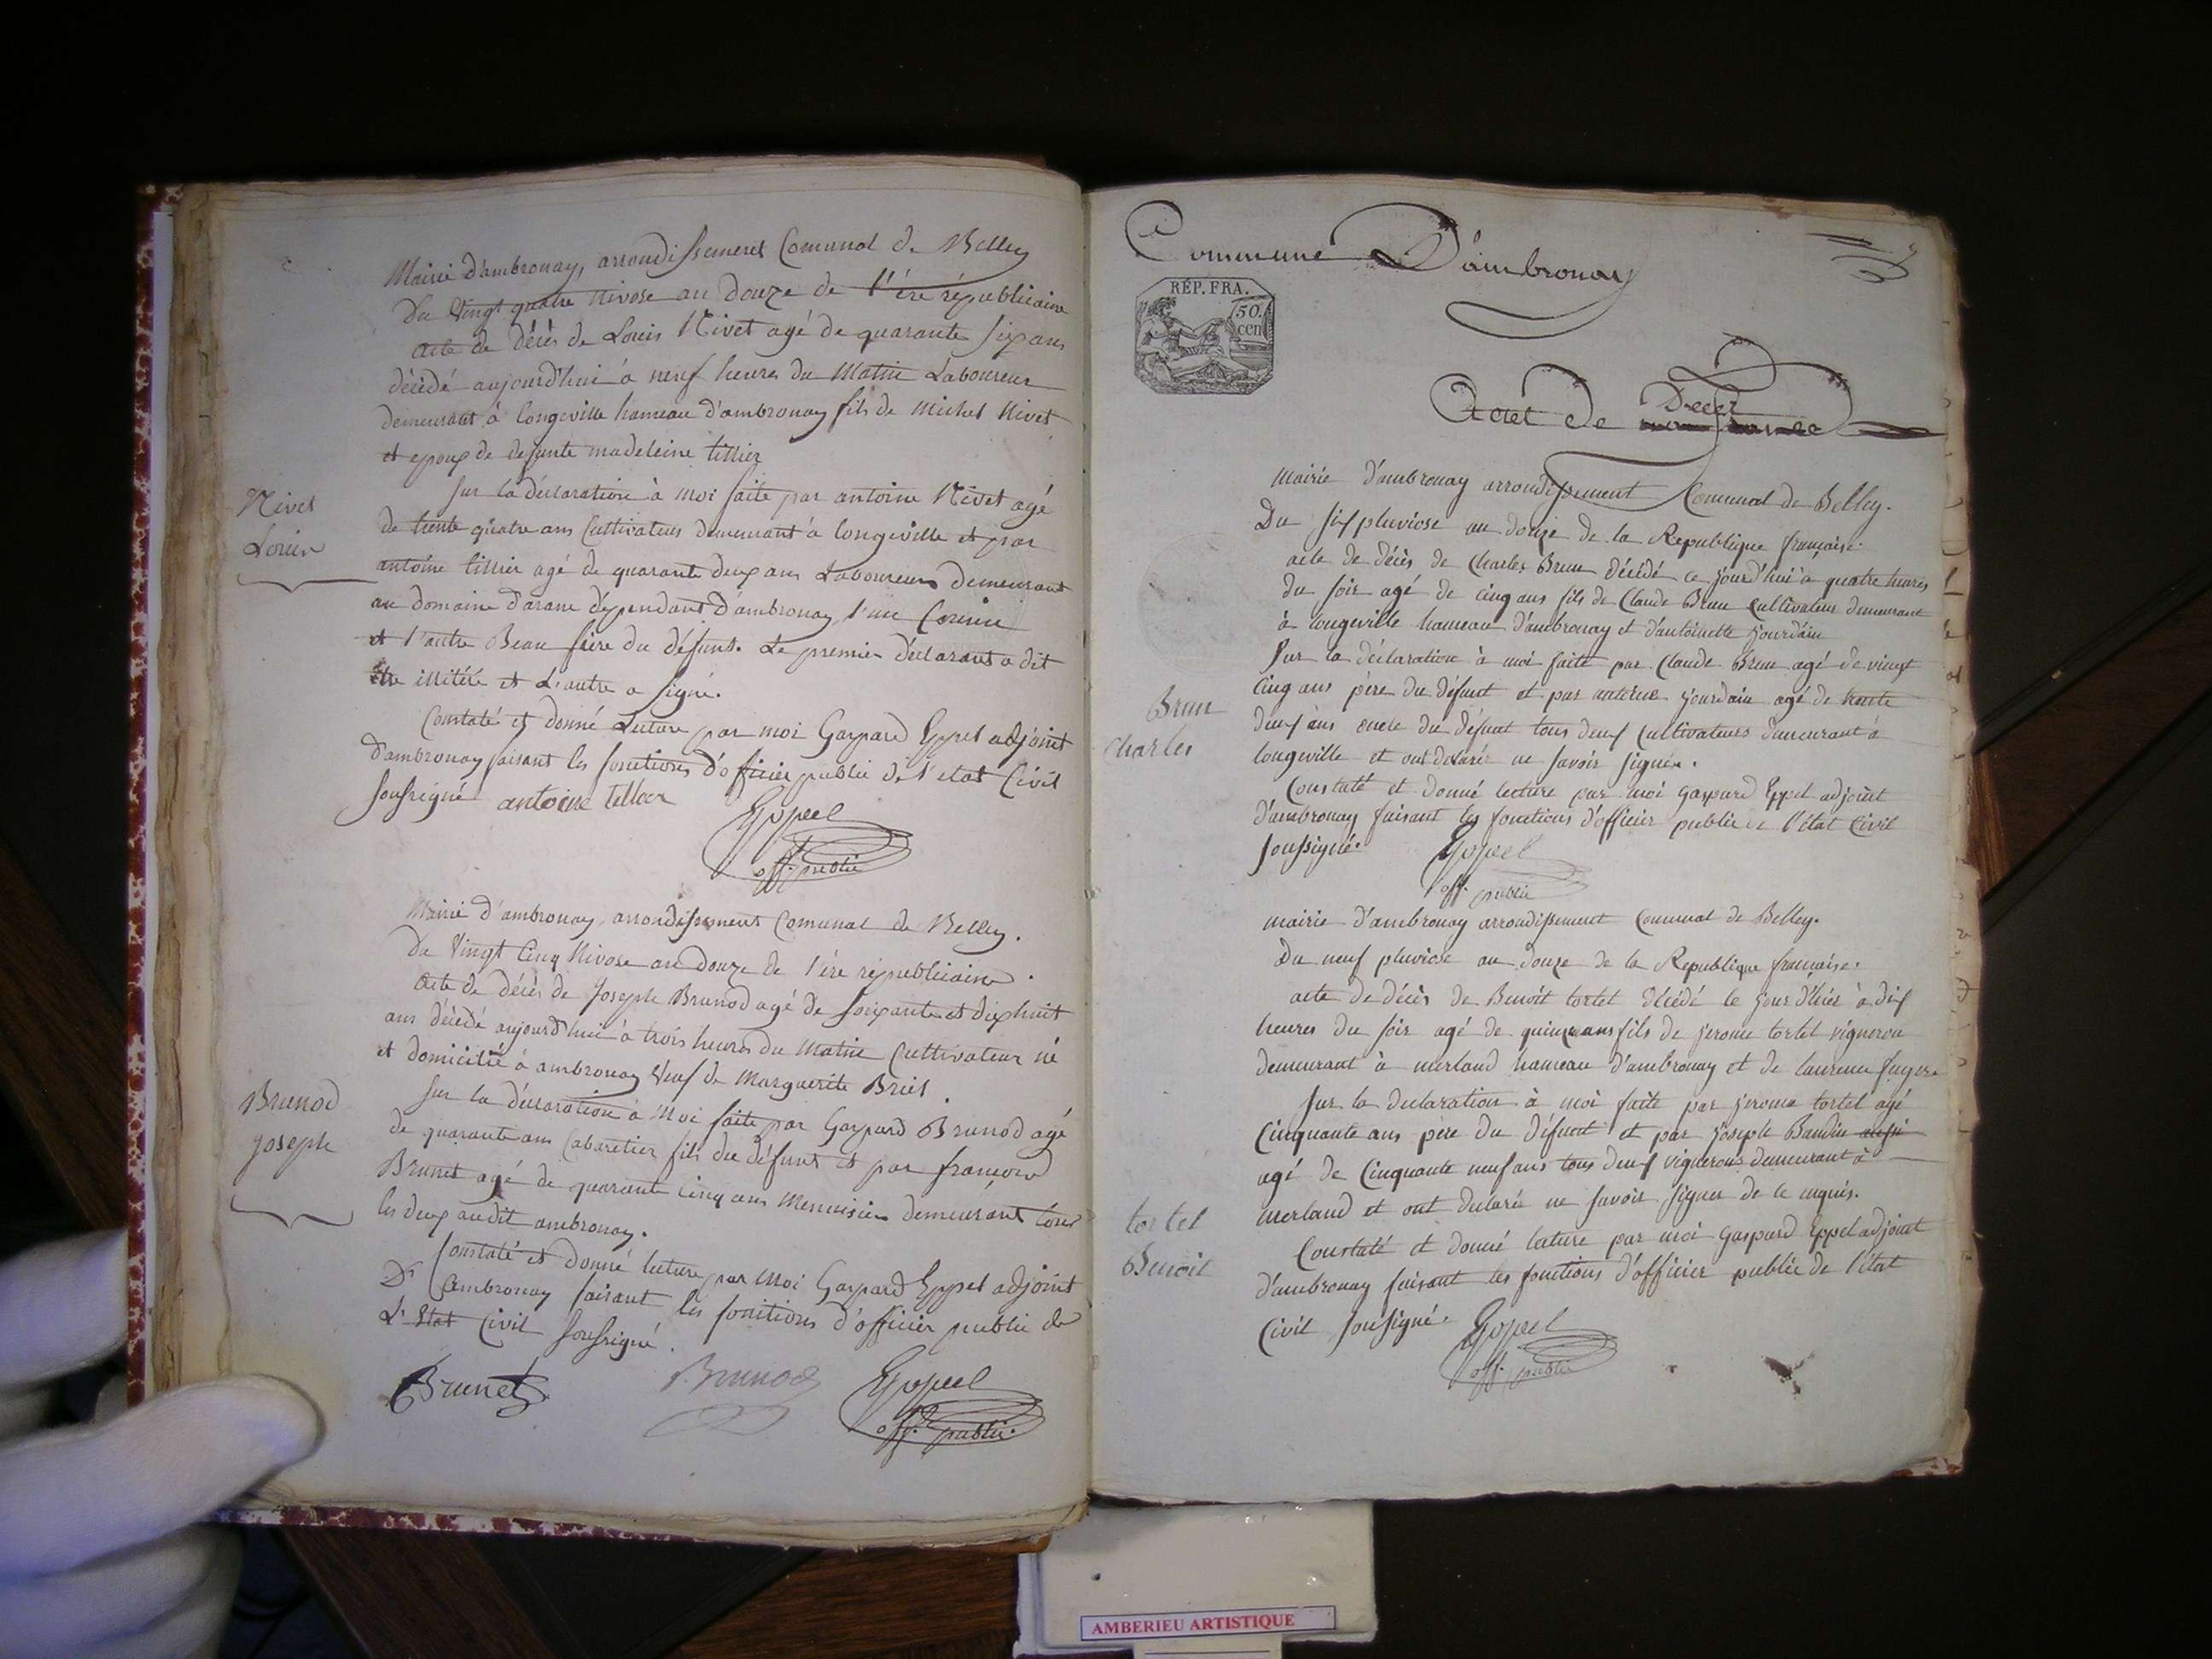 Mairie d'ambronay, arrondissement Comunal de Belley
Du Vingt quatre Nivose an Douze de l'ére républicaine
Acte de décès de Louis Nivet agé de quarante six ans
décédé aujourd'hui à neuf heures du Matin Laboureur
demeurant à Longeville hameau d'ambronay fils de Michel Nivet
et epoux de defunte madeleine tillier
Sur la déclaration à moi faite par antoine Nivet agé
de trente quatre ans Cultivateur demeurant à longeville et par
antoine tillier agé de quarante deux ans Laboureur demeurant
au domaine d'arane dépendant d'ambronay l'un Cousin
et l'autre Beau frère du défunt. Le premier déclarant a dit
être illitéré et L'autre a signé.
Constaté et donné Lecture par moi Gaspard Eppel adjoint
d'ambronay faisant les fonctions d'officier public de l'etat Civil
soussigné antoine tillier
Eppel
off. public
Nivet
Louis
Mairie d'ambronay, arrondissement Comunal de Belley.
Du Vingt Cinq Nivose an douze de l'ére républicaine.
Acte de décès de Joseph Brunod agé de soixante et dix huit
ans décédé aujourd'hui à trois heures du Matin Cultivateur né
et domicilié à ambronay Veuf de Marguerite Briel.
Sur la déclaration à Moi faite par Gaspard Brunod agé
de quarante ans Cabaretier fils du défunt et par françois
Brunet agé de quarante cinq ans Menuisier demeurant tous
les deux audit ambronay.
Constaté et donné lecture par Moi Gaspard Eppel adjoint
D'Ambronay faisant les fonctions d'officier public de
L'Etat Civil soussigné.
Brunet Brunod Eppel
off. public.
Brunod
joseph
Commune D'ambronay
RÉP. FRA.
50.
cen
Actes de Décès
mairie d'ambronay arrondissement Communal de Belley.
Du six pluviose an douze de la Republique française.
acte de décès de Charles Brun décédé ce jourd'hui à quatre heures
du soir agé de cinq ans fils de Claude Brun Cultivateur demeurant
à longeville hameau d'ambronay et d'antoinette Jourdain
Sur la déclaration à moi faite par Claude Brun agé de vingt
cinq ans père du défunt et par antoine Jourdain agé de trente
deux ans oncle du défunt tous deux cultivateurs demeurant à
longeville et ont déclaré ne savoir signer.
Constaté et donné lecture par moi gaspard Eppel adjoint
d'ambronay faisant les fonctions d'officier public de l'état Civil
soussigné. Eppel
off. public
Brun
Charles
mairie d'ambronay arrondissement Communal de Belley.
Du neuf pluviose an douze de la Republique française.
acte de décès de Benoit tortel décédé le jour d'hier à dix
heures du soir agé de quinze ans fils de jerome tortel vigneron
demeurant à merland hameau d'ambronay et de laurence
Sur la declaration à moi faite par jerome tortel agé
Cinquante ans père du défunt et par joseph Baudin aussi
agé de Cinquante neuf ans tous deux vignerons demeurant à
merland et ont declaré ne savoir signer de ce enquis.
Constaté et donné lecture par moi gaspard Eppel adjoint
d'ambronay faisant les fonctions d'officier public de l'état
Civil soussigné. Eppel
off. public
tortel
Benoit
AMBERIEU ARTISTIQUE